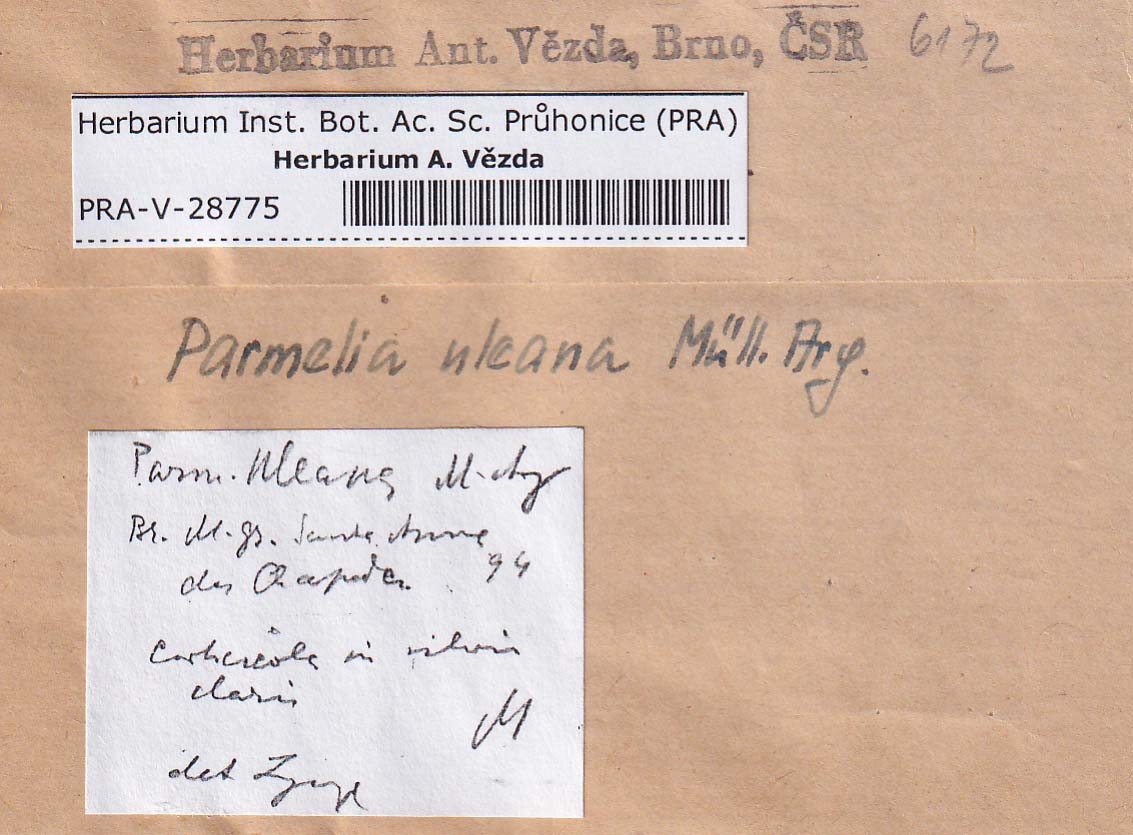 Herbarium Ant. Vězda, Brno, ČSR 6172
Herbarium Inst. Bot. Ac. Sc. Průhonice (PRA)
Herbarium A. Vězda
PRA-V-28775
Parmelia uleana Müll. Arg.
Parm. Uleana M-Arg
Br. M.gr. Santa Anna
da Chapada 94
corticola in silvis
claris
M
det